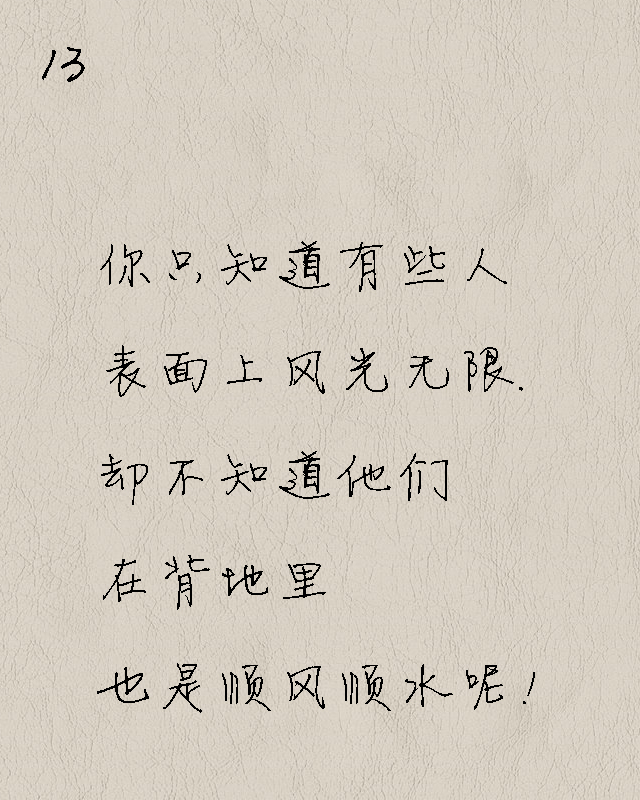 13
你只知道有些人
表面上风光无限.
却不知道他们
在背地里
也是顺风顺水呢!